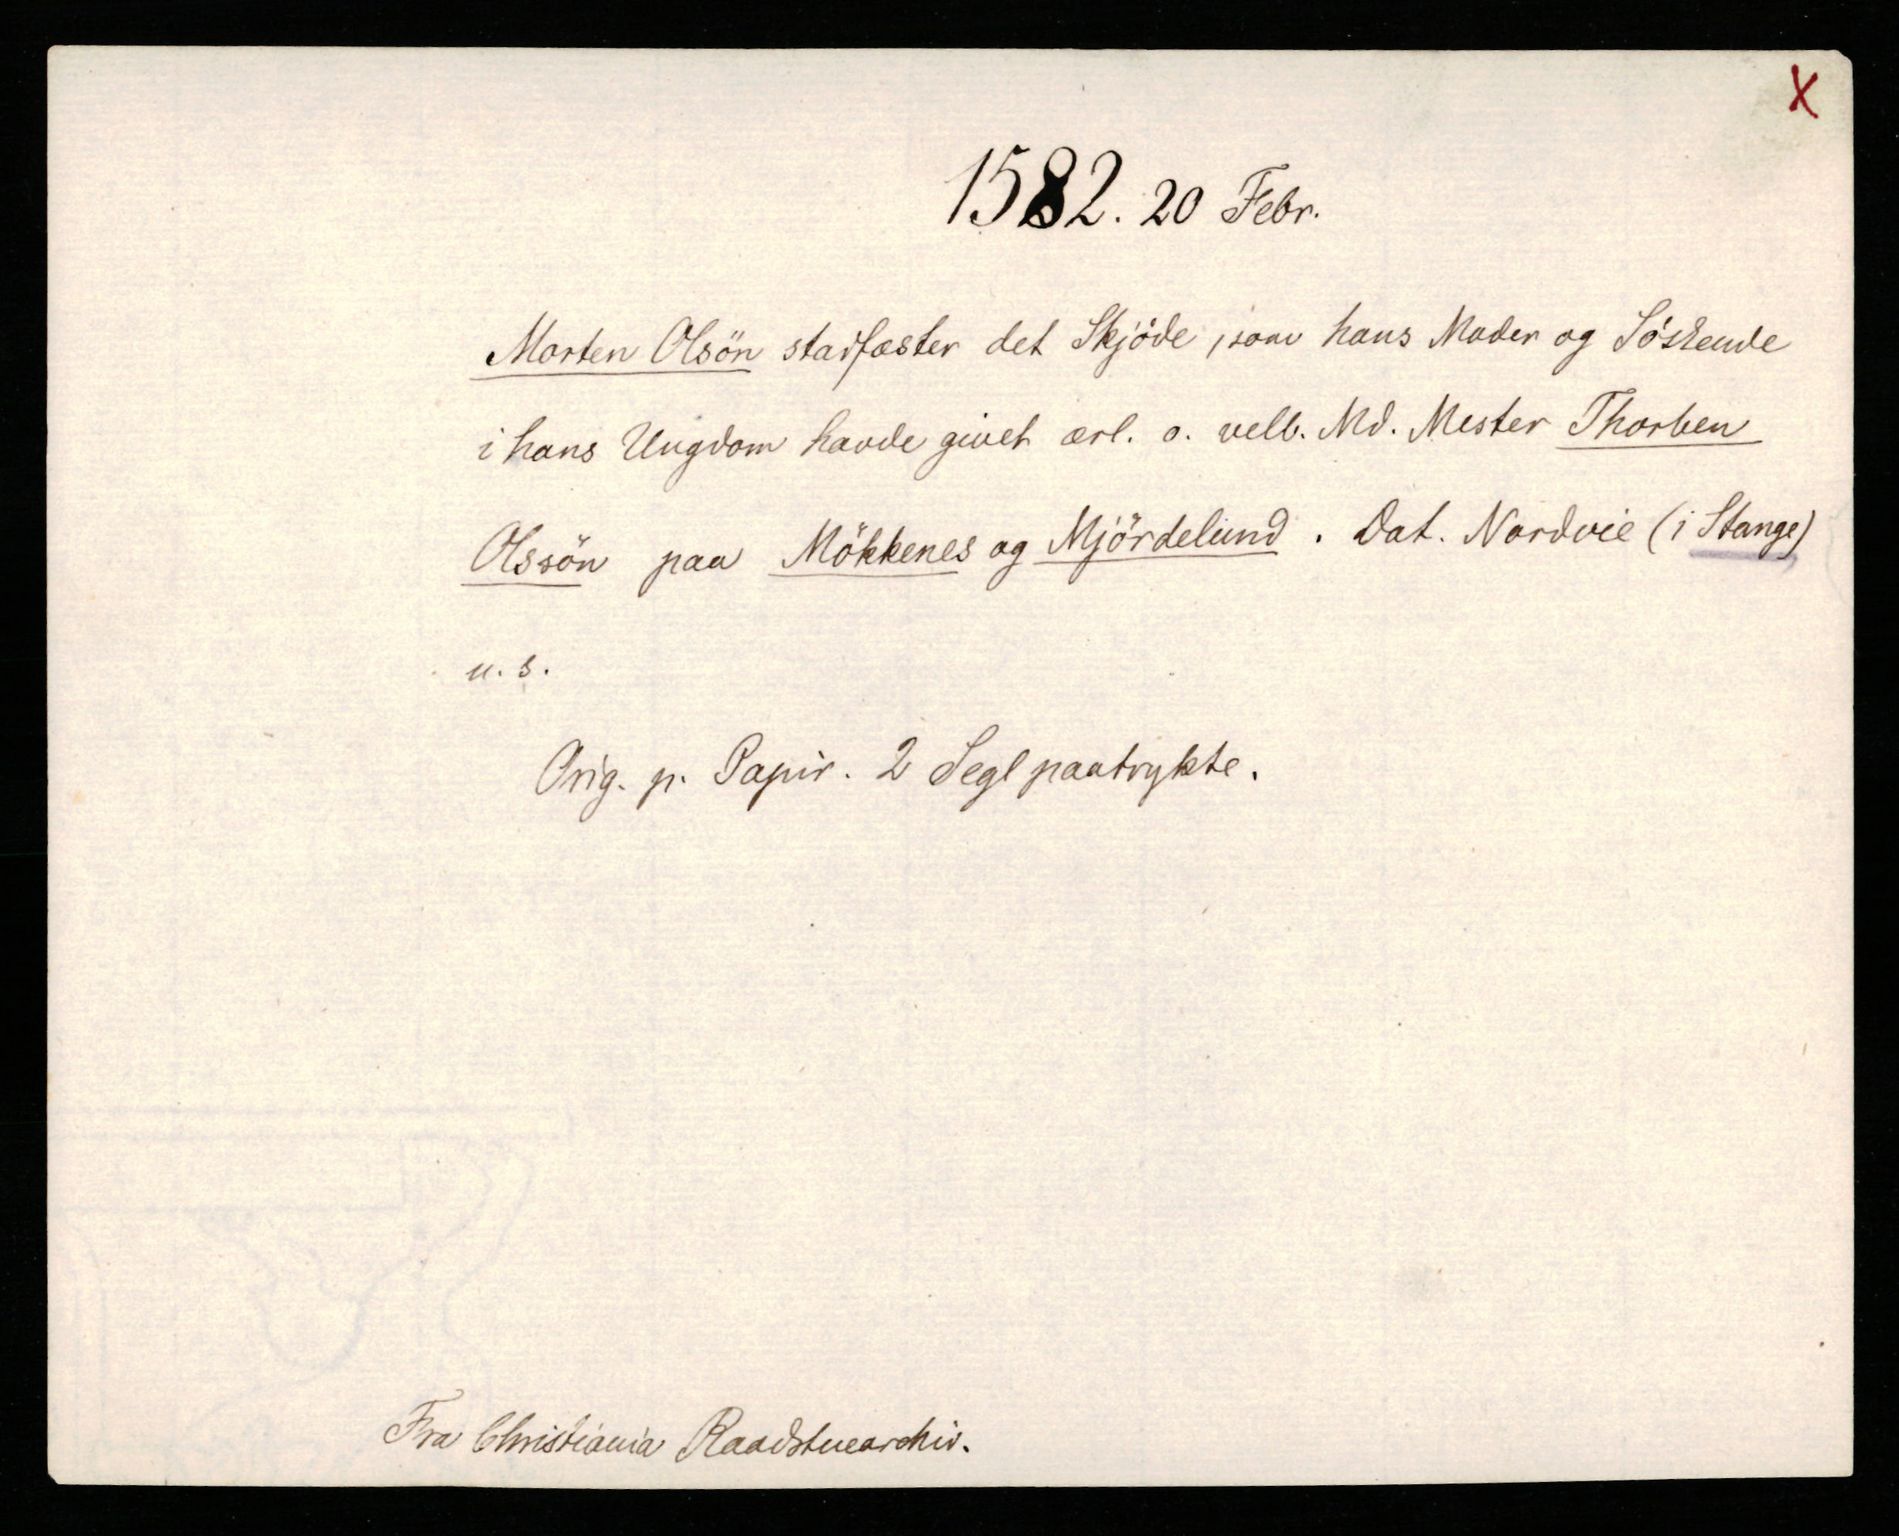 X
1582. 20 Febr.
Morten Olsön stadfæster det Skjöde, som hans Moder og Söskende
i hans Ungdom havde givet ærl. o. velb. Md. Mester Thorben
Olssön paa Mökkenes og Mjördelund. Dat. Nordvie (i Stange)
u. s.
Orig. p. Papir. 2 Segl paatrykte.
Fra Christiania Raadstuearchiv.